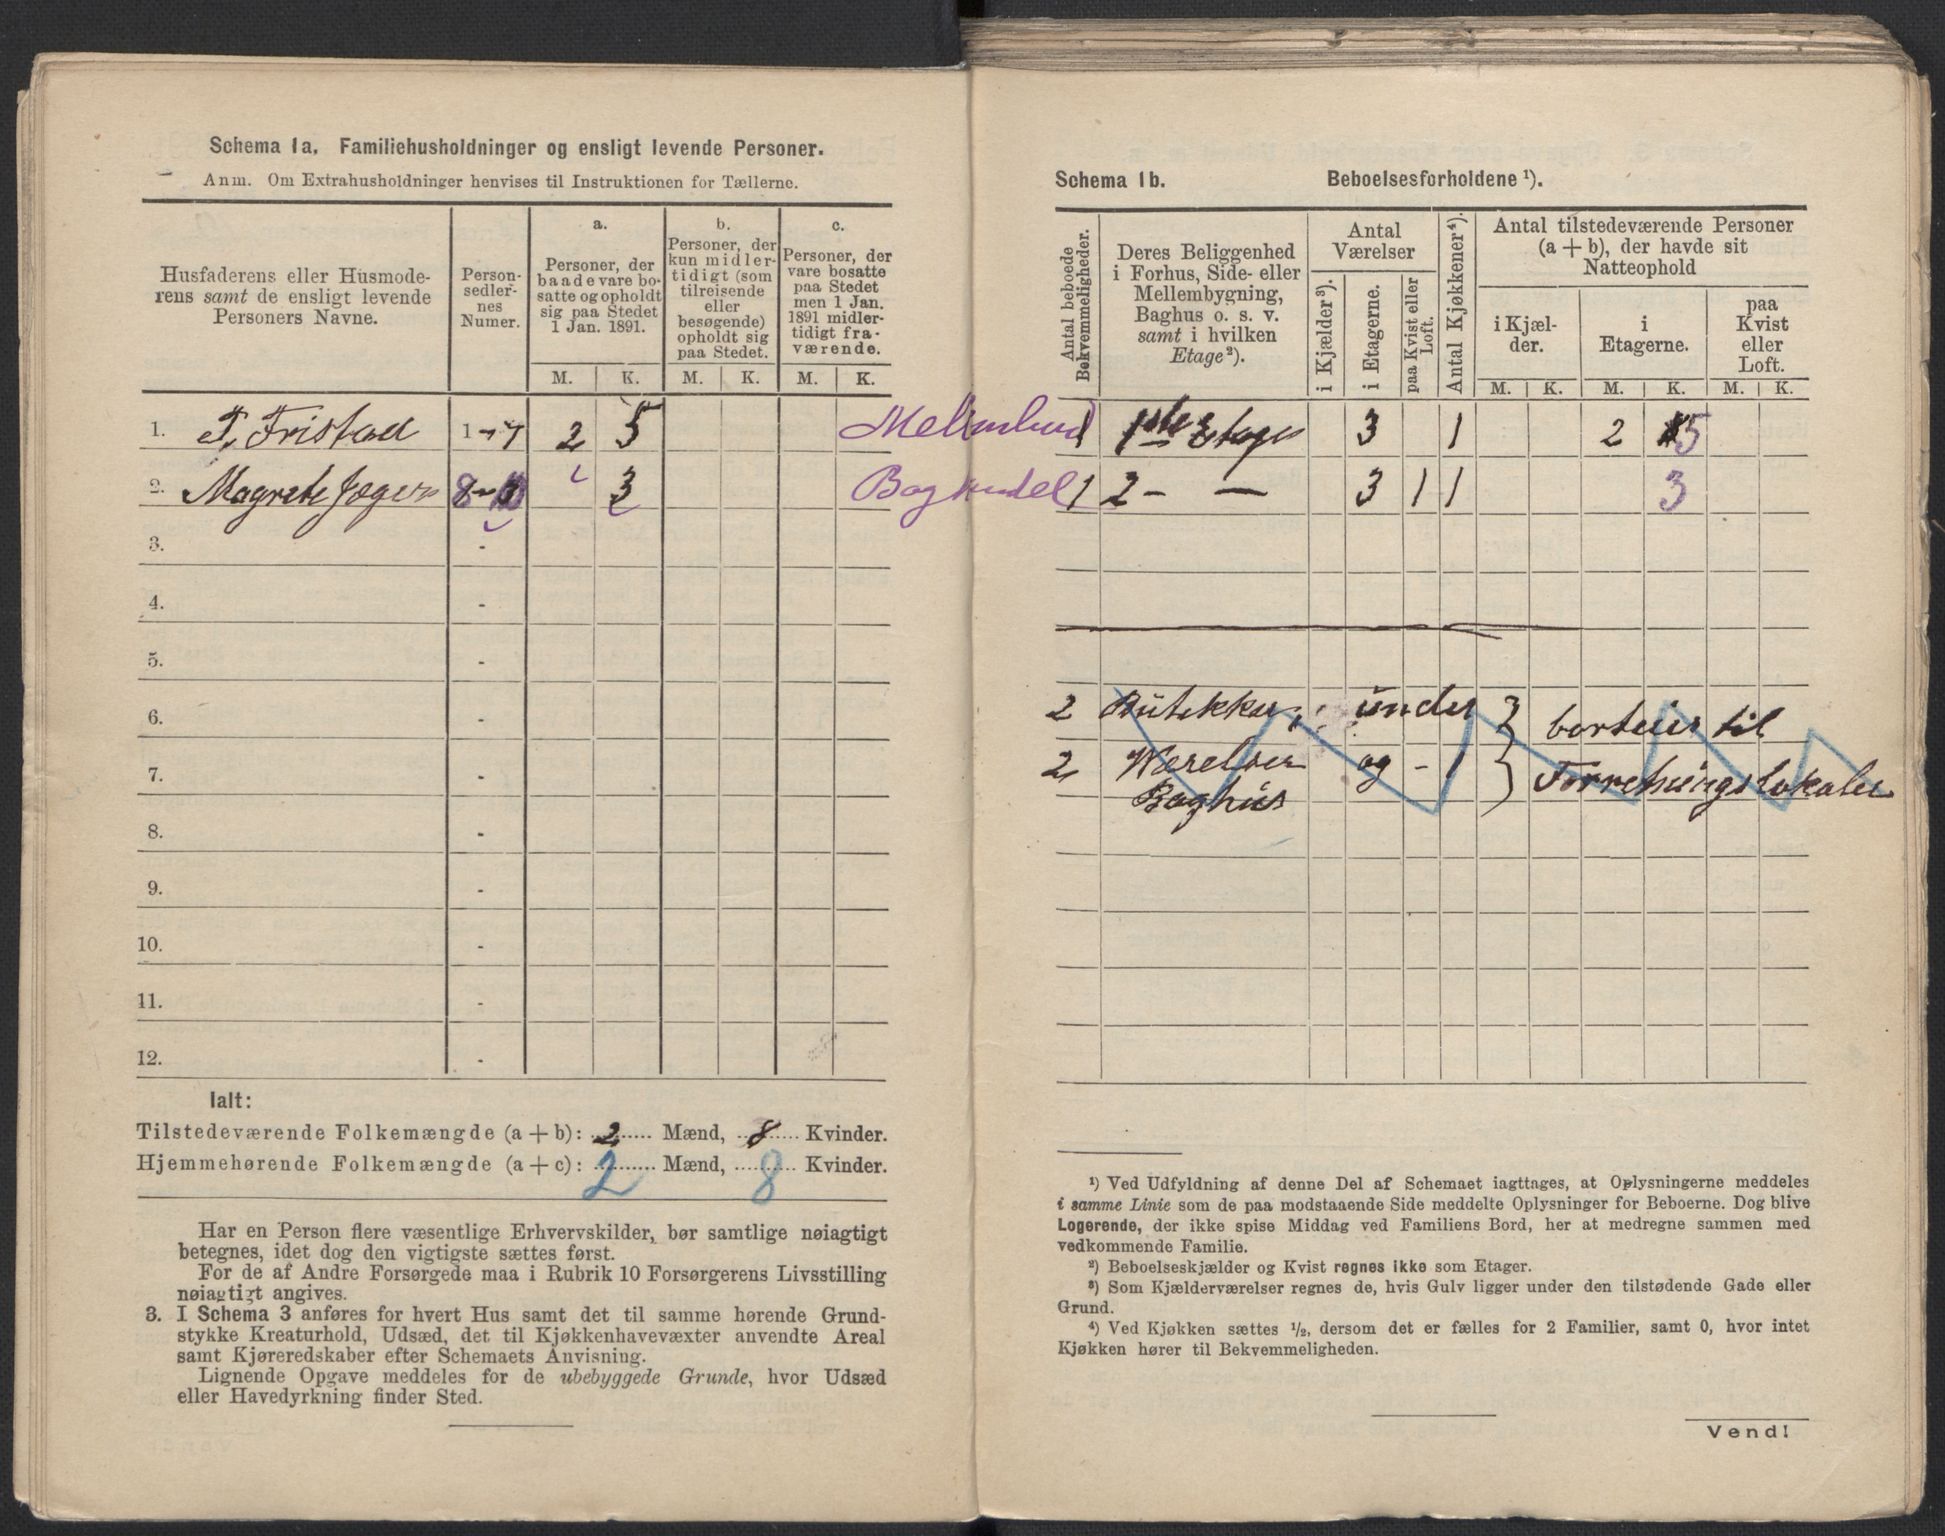 Schema 1a. Familiehusholdninger og ensligt levende Personer.
Anm. Om Extrahusholdninger henvises til Instruktionen for Tællerne.
Husfaderens eller Husmode-
rens samt de ensligt levende
Personers Navne.
Person-
sedler-
nes
Numer.
a.
Personer, der
baade vare bo-
satte og opholdt
sig paa Stedet
1 Jan. 1891.
b.
Personer, der
kun midler-
tidigt (som
tilreisende
eller
besøgende)
opholdt sig
paa Stedet.
c.
Personer, der
vare bosatte
paa Stedet
men 1 Jan.
1891 midler-
tidigt fra-
værende.
M. K. M. K. M. K.
1. T. Fristad 1-7 2 5
2. Magrete Jæger 8-10 3
3. -
4. -
5. -
6. -
7. -
8. -
9. -
10. -
11. -
12. -
Ialt:
Tilstedeværende Folkemængde (a + b): 2 Mænd, 8 Kvinder.
Hjemmehørende Folkemængde (a + c): 2 Mænd, 8 Kvinder.
Har en Person flere væsentlige Erhvervskilder, bør samtlige nøiagtigt
betegnes, idet dog den vigtigste sættes først.
For de af Andre Forsørgede maa i Rubrik 10 Forsørgerens Livsstilling
nøiagtigt angives.
3. I Schema 3 anføres for hvert Hus samt det til samme hørende Grund-
stykke Kreaturhold, Udsæd, det til Kjøkkenhavevæxter anvendte Areal
samt Kjøreredskaber efter Schemaets Anvisning.
Lignende Opgave meddeles for de ubebyggede Grunde, hvor Udsæd
eller Havedyrkning finder Sted.
Schema 1b. Beboelsesforholdene ¹).
Antal beboede
Bekvemmeligheder.
Deres Beliggenhed
i Forhus, Side- eller
Mellembygning,
Baghus o. s. v.
samt i hvilken
Etage ²).
Antal
Værelser
i Kjælder ³).
i Etagerne.
paa Kvist eller
Loft.
Antal Kjøkkener ⁴).
Antal tilstedeværende Personer
(a + b), der havde sit
Natteophold
i Kjæl-
der.
i
Etagerne.
paa
Kvist
eller
Loft.
M. K. M. K. M. K.
1 1ste Etage 3 1 2 5
1 2 - - 3 1 1 3
2 Butikker, under
2 Værelser og - 1
Baghus
borteies til
Forretningslokaler
¹) Ved Udfyldning af denne Del af Schemaet iagttages, at Oplysningerne meddeles
i samme Linie som de paa modstaaende Side meddelte Oplysninger for Beboerne. Dog blive
Logerende, der ikke spise Middag ved Familiens Bord, her at medregne sammen med
vedkommende Familie.
²) Beboelseskjælder og Kvist regnes ikke som Etager.
³) Som Kjælderværelser regnes de, hvis Gulv ligger under den tilstødende Gade eller
Grund.
⁴) Ved Kjøkken sættes ½, dersom det er fælles for 2 Familier, samt 0, hvor intet
Kjøkken hører til Bekvemmeligheden.
Vend!